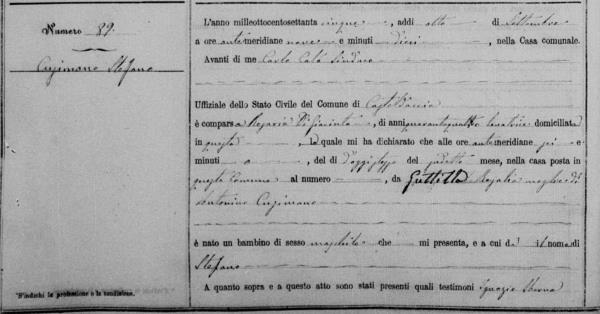 Numero 89.
Cusimano Stefano
L'anno milleottocentosettanta cinque, addi otto di Settembre
a ore antimeridiane nove e minuti dieci, nella Casa comunale.
Avanti di me Carlo Calá Sindaco
Uffiziale dello Stato Civile del Comune di Casteldaccia
è comparsa Rosaria Di Giacinto, di anni quarantaquattro levatrice domiciliata
in questa, la quale mi ha dichiarato che alle ore antimeridiane sei e
minuti, del dì d'oggi stesso del mese, nella casa posta in
questo Comune al numero, da Guttilla Rosalia moglie di
Antonino Cusimano
è nato un bambino di sesso maschile che mi presenta, e a cui dà il nome di
Stefano
A quanto sopra e a questo atto sono stati presenti quali testimoni Ignazio
S'indichi la professione o la condizione.